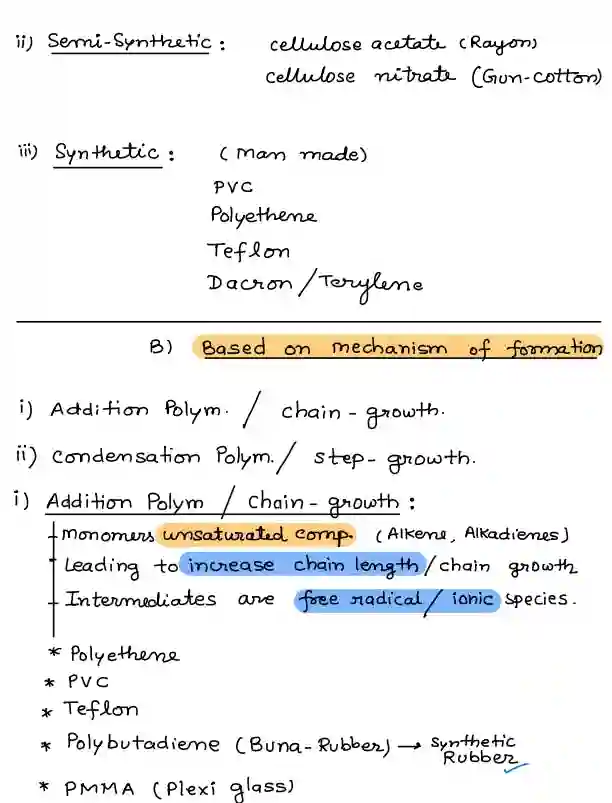 ii) Semi-Synthetic : cellulose acetate (Rayon)
cellulose nitrate (Gun-cotton)
iii) Synthetic : (man made)
PVC
Polyethene
Teflon
Dacron / Terylene
B) Based on mechanism of formation
i) Addition Polym. / chain-growth.
ii) condensation Polym. / step-growth.
i) Addition Polym / Chain-growth :
Monomers unsaturated comp. (Alkene, Alkadienes)
Leading to increase chain length / chain growth
Intermediates are free radical / ionic species.
* Polyethene
* PVC
* Teflon
* Polybutadiene (Buna-Rubber) → Synthetic Rubber
* PMMA (Plexi glass)